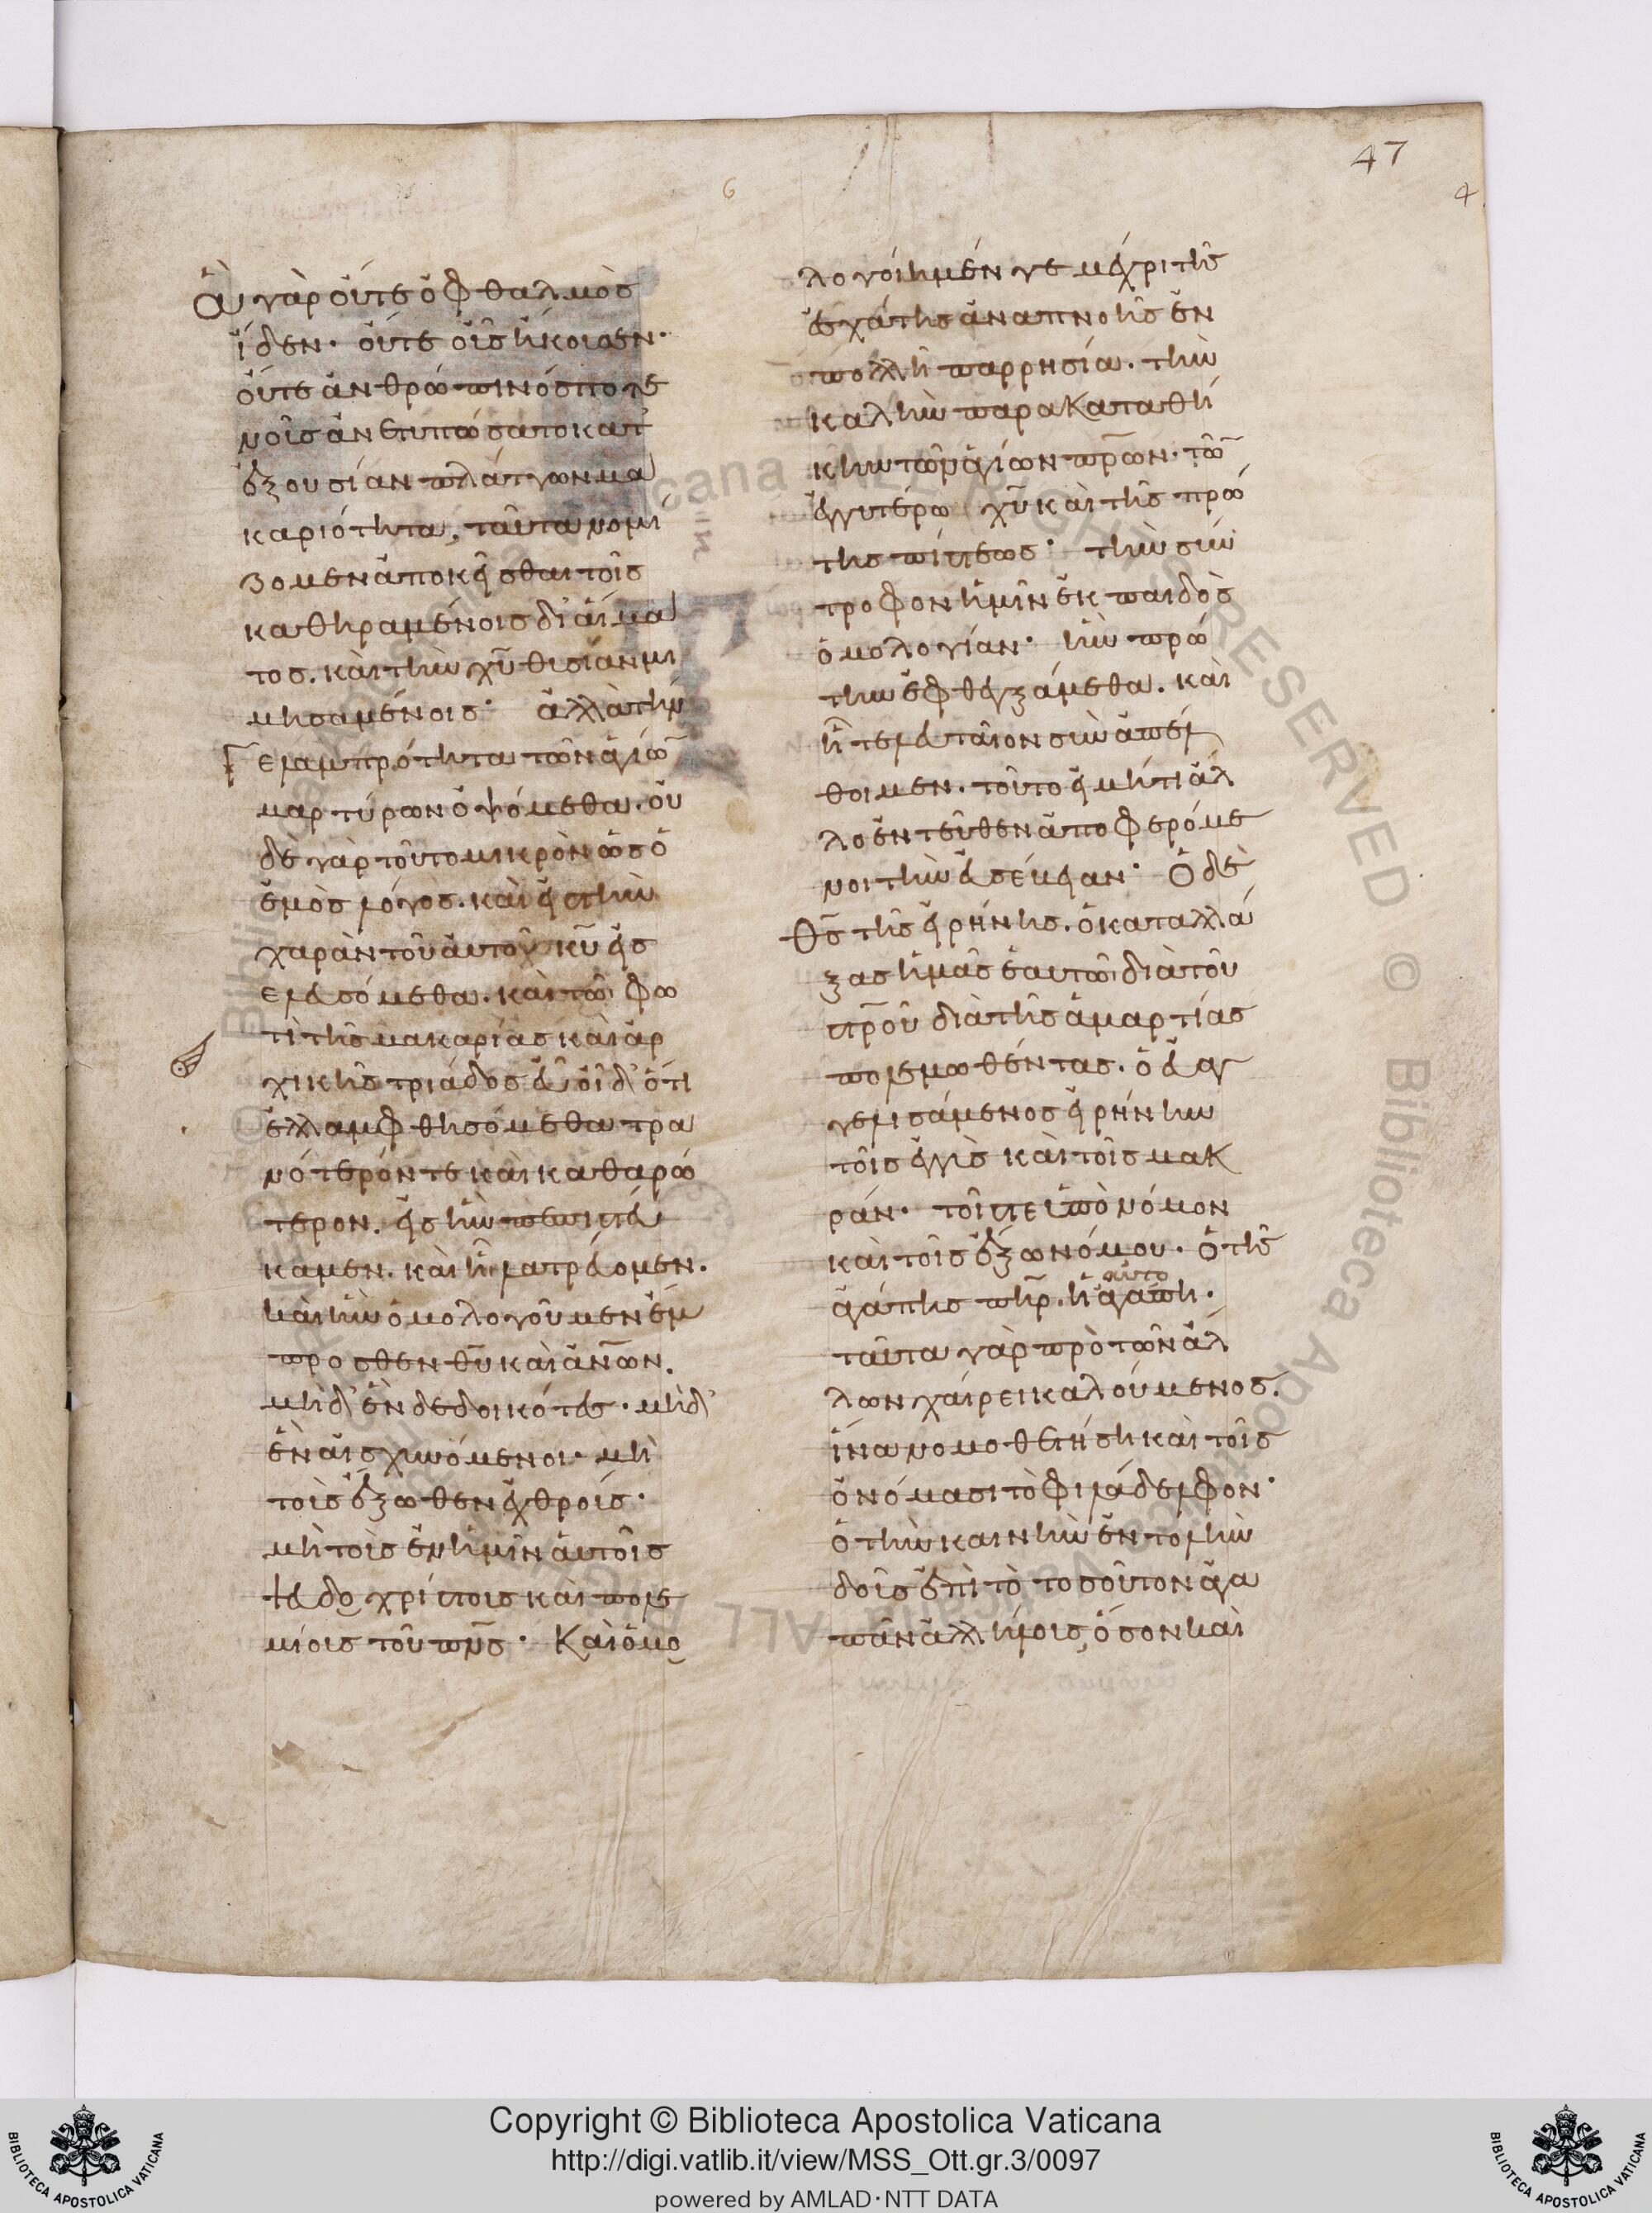 Ἃ γὰρ οὔτε ὀφθαλμὸς
ἴδεν· οὔτε οὖς ἤκουσεν·
οὔτε ἀνθρώπινός ποτε
νοῦς ἀνετυπώσατο κατ'
ἐξουσίαν πλάττων μα
καριότητα, ταῦτα νομί
ζομεν ἀποκεῖσθαι τοῖς
καθηραμένοις δι' αἵμα
τος. καὶ τὴν χ̅υ̅ θυσίαν μι
μησαμένοις· ἀλλὰ τήν
γε λαμπρότητα τῶν ἁγίω̅
μαρτύρων ὀψόμεθα. οὐ
δὲ γὰρ τοῦτο μικρὸν ὡς ὁ
ἐμὸς λόγος. καὶ εἰς τὴν
χαρὰν τοῦ αὐτοῦ κ̅υ̅ εἰσ
ελευσόμεθα. καὶ τῶ φω
τὶ τῆς μακαρίας καὶ ἀρ
χικῆς τριάδος εὖ οἶδ' ὅτι
ἐλλαμφθησόμεθα τρα
νότερόν τε καὶ καθαρώ
τερον. εἰς ἣν πεπιστεύ
καμεν. καὶ ἧ λατρεύομεν.
καὶ ἣν ὁμολογοῦμεν ἔμ
προσθεν θ̅υ̅ καὶ ἀ̅ν̅ων.
μηδ' ἓν δεδοικότες· μηδ'
ἓν αἰσχυνόμενοι· μὴ
τοὺς ἔξωθεν ἐχθρούς·
μὴ τοὺς ἐν ἡμῖν αὐτοῖς
ψευδοχρίστους καὶ πολε
μίους τοῦ π̅ν̅ς̅· Καὶ ὁμο
λογοίημέν γε μέχρι τῆς
ἐσχάτης ἀναπνοῆς ἐν
πολλῆ παρρησία. τὴν
καλὴν παρακαταθή
κην τῶν ἁγίων π̅ρ̅ων· τῶ̅
ἐγγυτέρω χ̅υ̅ καὶ τῆς πρώ
της πίστεως· τὴν σύν
τροφον ἡμῖν ἐκ παιδὸς
ὁμολογίαν· ἣν πρώ
την ἐφθεγξάμεθα. καὶ
ἧ τελευταῖον συναπέλ
θοιμεν. τοῦτο εἰ μή τι ἄλ
λο ἐντεῦθεν ἀποφερόμε
νοι τὴν εὐσέβειαν· Ὁ δὲ
Θ̅ς̅ τῆς εἰρήνης. ὁ καταλλά
ξας ἡμᾶς ἑαυτῶ διὰ τοῦ
σ̅τ̅ρ̅οῦ διὰ τῆς ἁμαρτίας
πολεμωθέντας. ὁ εὐαγ
γελισάμενος εἰρήνην
τοῖς ἐγγὺς καὶ τοῖς μακ
ράν· τοῖς τε ὑπὸ νόμον
καὶ τοῖς ἔξω νόμου· Ὁ τῆς
ἀγάπης π̅η̅ρ̅. ἡ αὐτοαγάπη·
ταῦτα γὰρ πρὸ τῶν ἄλ
λων χαίρει καλούμενος.
ἵνα νομοθετήση καὶ τοῖς
ὀνόμασι τὸ φιλάδελφον·
ὁ τὴν καινὴν ἐντολὴν
δοὺς ἐπὶ τὸ τοσοῦτον ἀγα
πᾶν ἀλλήλους, ὅσον καὶ
47
4
6
Copyright © Biblioteca Apostolica Vaticana
http://digi.vatlib.it/view/MSS_Ott.gr.3/0097
powered by AMLAD·NTT DATA
BIBLIOTECA APOSTOLICA VATICANA
BIBLIOTECA APOSTOLICA VATICANA